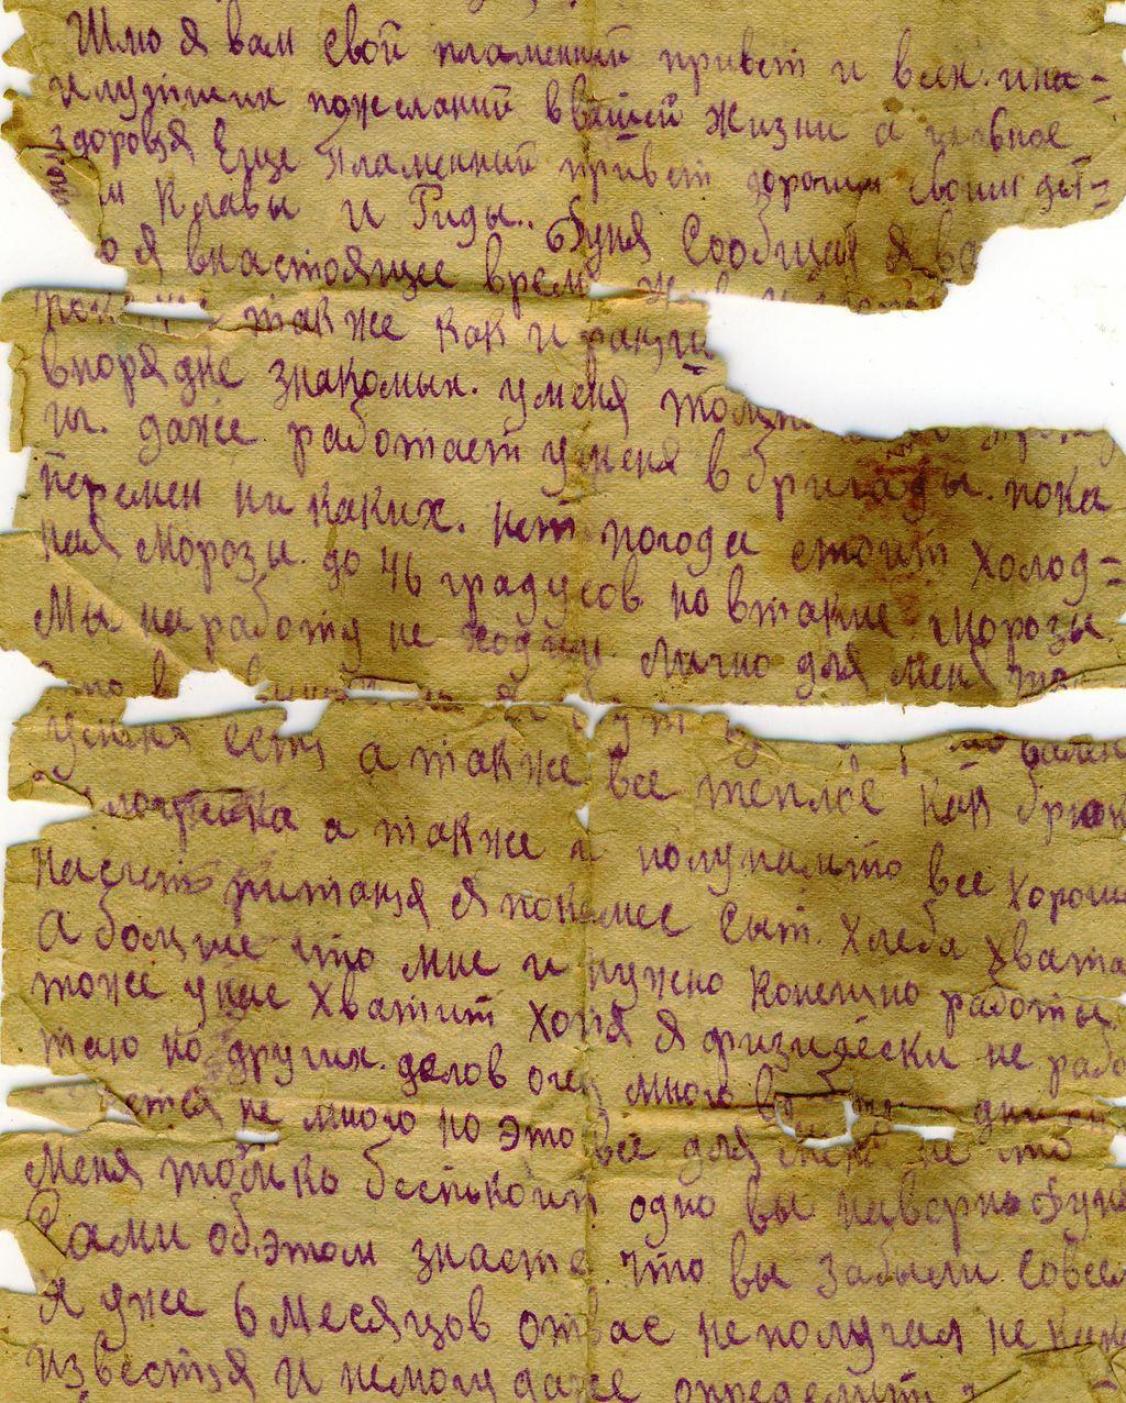 Шлю я вам свой пламенный привет и всех. ина-
илутших пожеланий ввашей жизни а главное
здоровзя Еще Пламенный привет дорогим своим дет-
м Клавы и Гиды.. Дуня Сообщаю я ва
о я внастоящее врем
также как и
впорядке знакомых. уменя
ги. даже. работает уменя в бригады. пока
перемен ни каких. нет погода стоит холод-
ная морозы. до 46 градусов но втакие морозы.
Мы наработу не ходим. Лично для меня
уменя есть а также все теплое как брюк
а также и полупалто все хорош
насчет питаня я покамес сыт. Хлеба хвата
А больше что мне и нужно конешно работы.
тоже унас хватит хотя я физически не рабо
таю но других. делов очен много
не много но это все для не что
меня только беспокоит одно вы наверно Дуня
Сами обэтом знаете. что вы забыли совсем
Я уже 6 месяцов отвас неполучал не
известзя и немогу даже определит